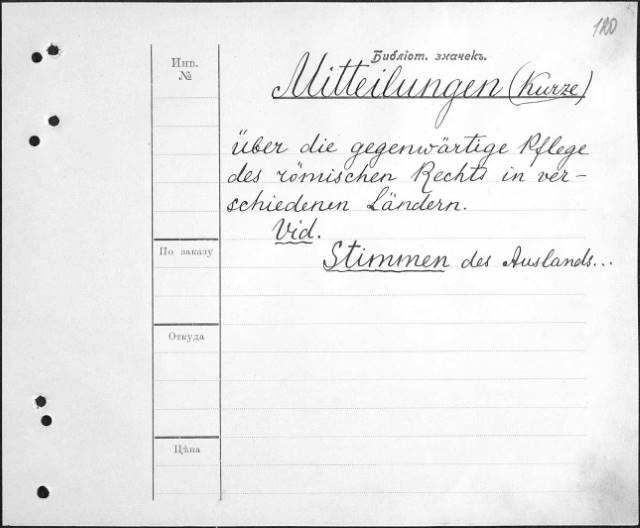 180
Библіот. значекъ.
Инв.
№
Mitteilungen (Kurze)
über die gegenwärtige Pflege
des römischen Rechts in ver-
schiedenen Ländern.
Vid.
По заказу
Stimmen des Auslands...
Откуда
Цѣна